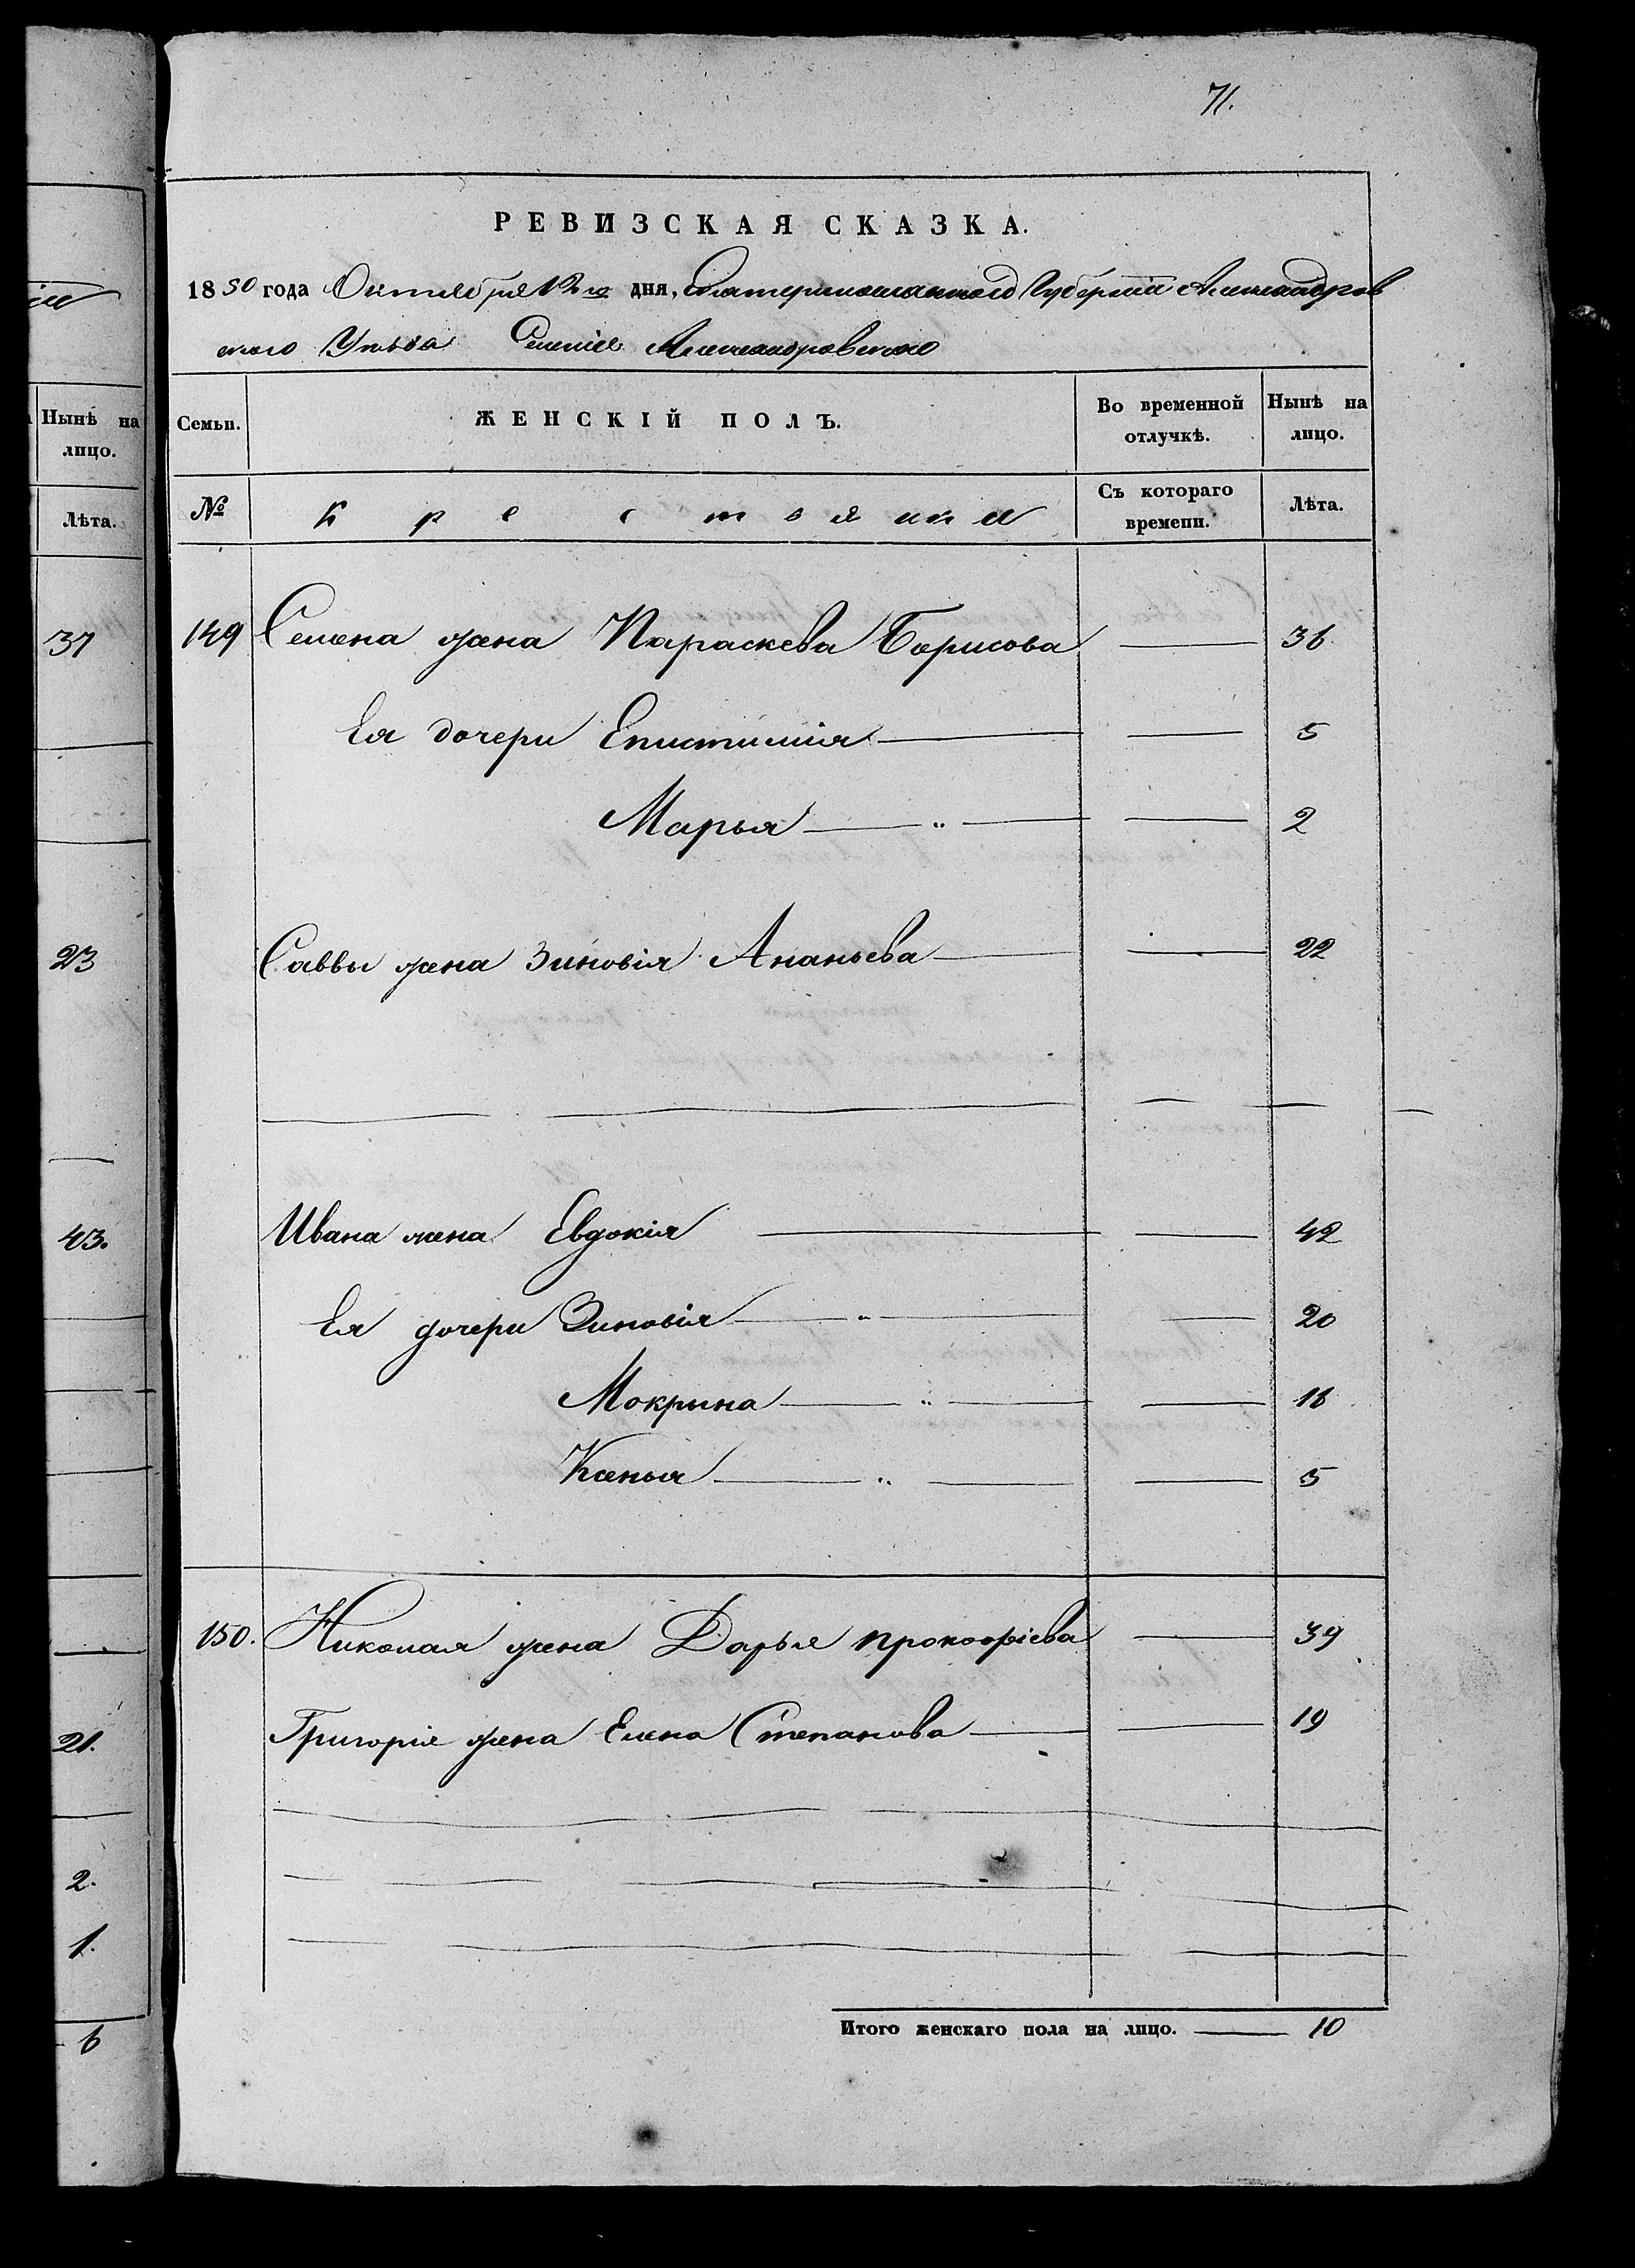 71.
РЕВИЗСКАЯ СКАЗКА.
1850 года Октября 12го дня, Екатеринославской Губерніи Александров
ского Уѣзда Селенiе Александровского
Семьи. ЖЕНСКІЙ ПОЛЪ. Во временной отлучкѣ. Нынѣ на лицо.
№ Крестьянки Съ котораго времени. Лѣта.
149 Семена жена Параскева Борисова — 36
Ея дочери Епистимия — 5
Марья — „ — 2
Саввы жена Зиновія Ананьева — 22
Ивана жена Евдокія — 42
Ея дочери Зиновія — „ — 20
Мокрына — „ — 16
Ксенья — „ — 5
150. Николая жена Дарья Прокофіева — 39
Григорія жена Елена Степанова — 19
Итого женскаго пола на лицо. — 10
Нынѣ на лицо.
Лѣта.
37
23
43.
21.
2.
1.
6